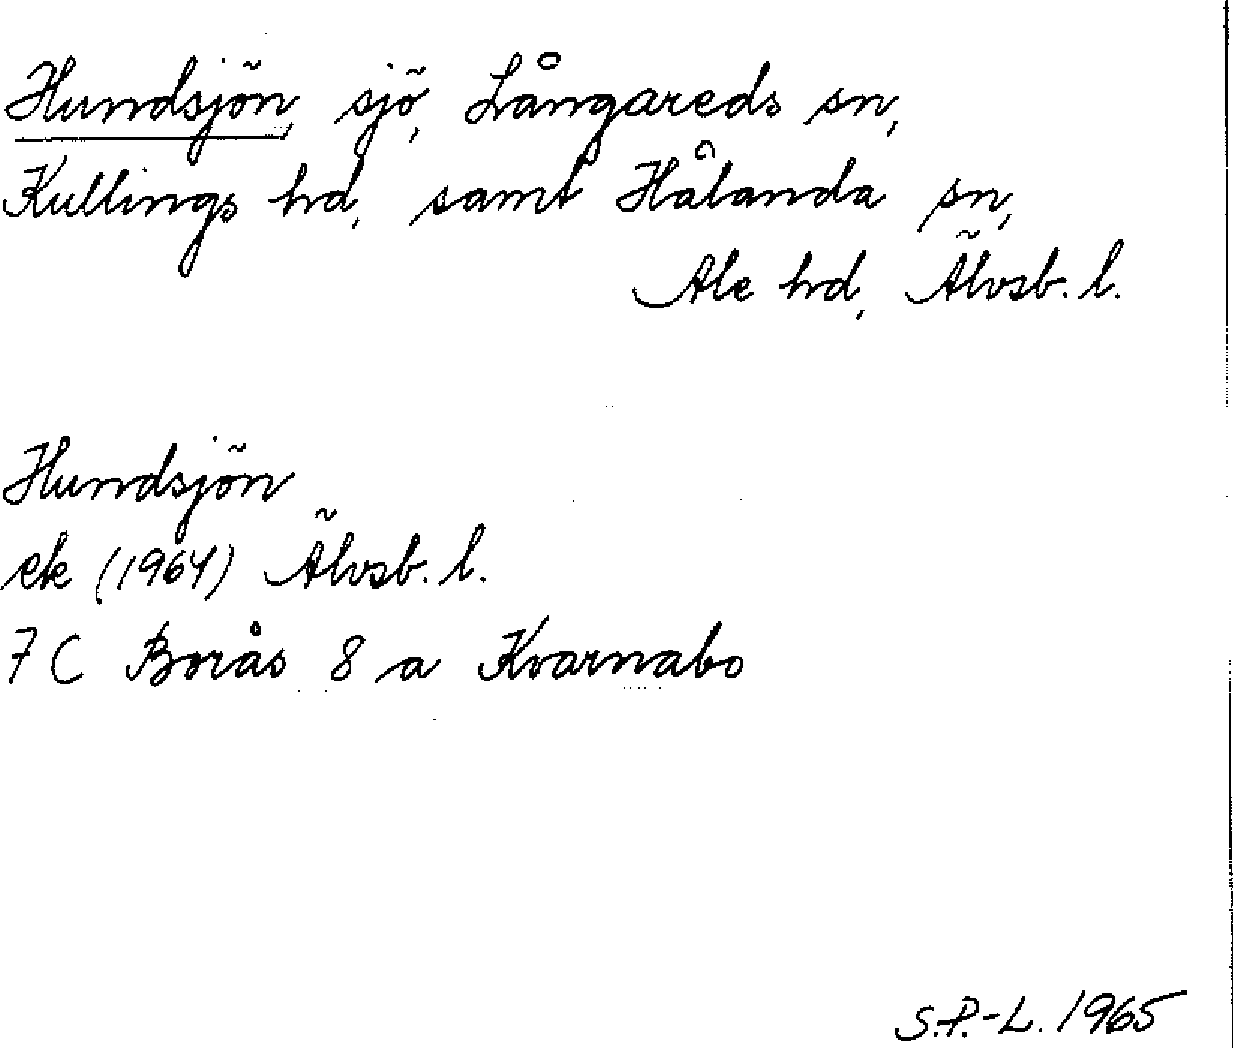 Hundsjön, sjö, Långareds sn,
Kullings hd, samt Hålanda sn,
Ale hd, Älvsb. l.
Hundsjön
ek (1964) Älvsb. l.
7 C Borås 8 a Kvarnabo
S.P.-L. 1965